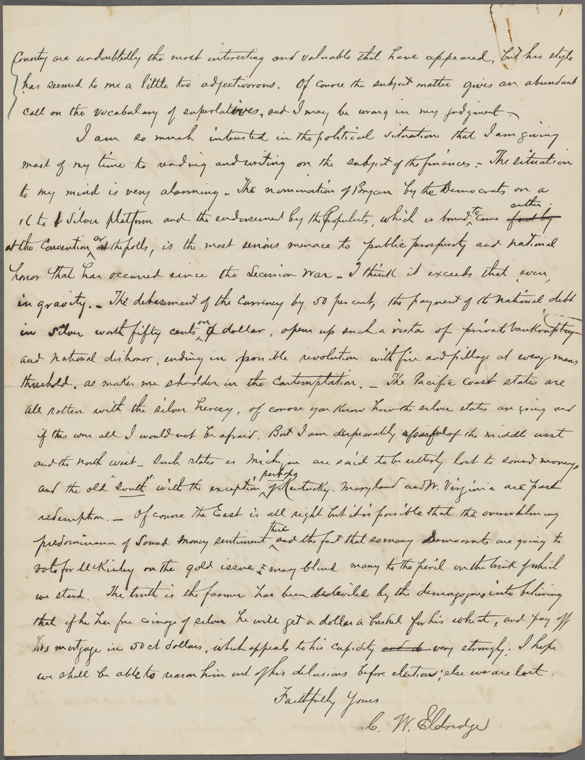 County are undoubtedly the most interesting and valuable that have appeared, but his style
has seemed to me a little too adjectivorous. Of course the subject matter gives an abundant
call on the vocabulary of superlatives, and I may be wrong in my judgment –
I am so much interested in the political situation that I am giving
most of my time to reading and writing on the subject of the finances. – The situation
to my mind is very alarming – The nomination of Bryan by the Democrats on a
16 to 1 Silver platform and the endorsement by the Populists, which is bound to come either
at the Convention or at the polls, is the most serious menace to public prosperity and national
honor that has occurred since the Secession War – I think it exceeds that even
in gravity. – The debasement of the currency by 50 per cent, the payment of the national debt
in silver worth fifty cents on the dollar, opens up such a vista of private bankruptcy
and national dishonor, ending in possible revolution with fire and pillage at every mans
threshold, as makes me shudder in the contemplation. – The Pacific Coast states are
all rotten with the silver heresy, of course you know how the silver states are going and
if this were all I would not be afraid. But I am desperately of the middle west
and the north west – Such states as Michigan are said to be utterly lost to sound money
and the old "South" with the exception perhaps of Kentucky, Maryland and W. Virginia are past
redemption. – Of course the East is all right but it is possible that the overwhelming
predominance of sound money sentiment there and the fact that so many Democrats are going to
vote for McKinley on the gold issue may blind many to the peril on the brink of which
we stand. The truth is the farmer has been bedeviled by the demagogues into believing
that if he has free coinage of silver he will get a dollar a bushel for his wheat, and pay off
his mortgage in 50 ct dollars, which appeals to his cupidity very strongly. I hope
we shall be able to reason him out of his delusions before election; else we are lost.
Faithfully Yours
C. W. Eldridge